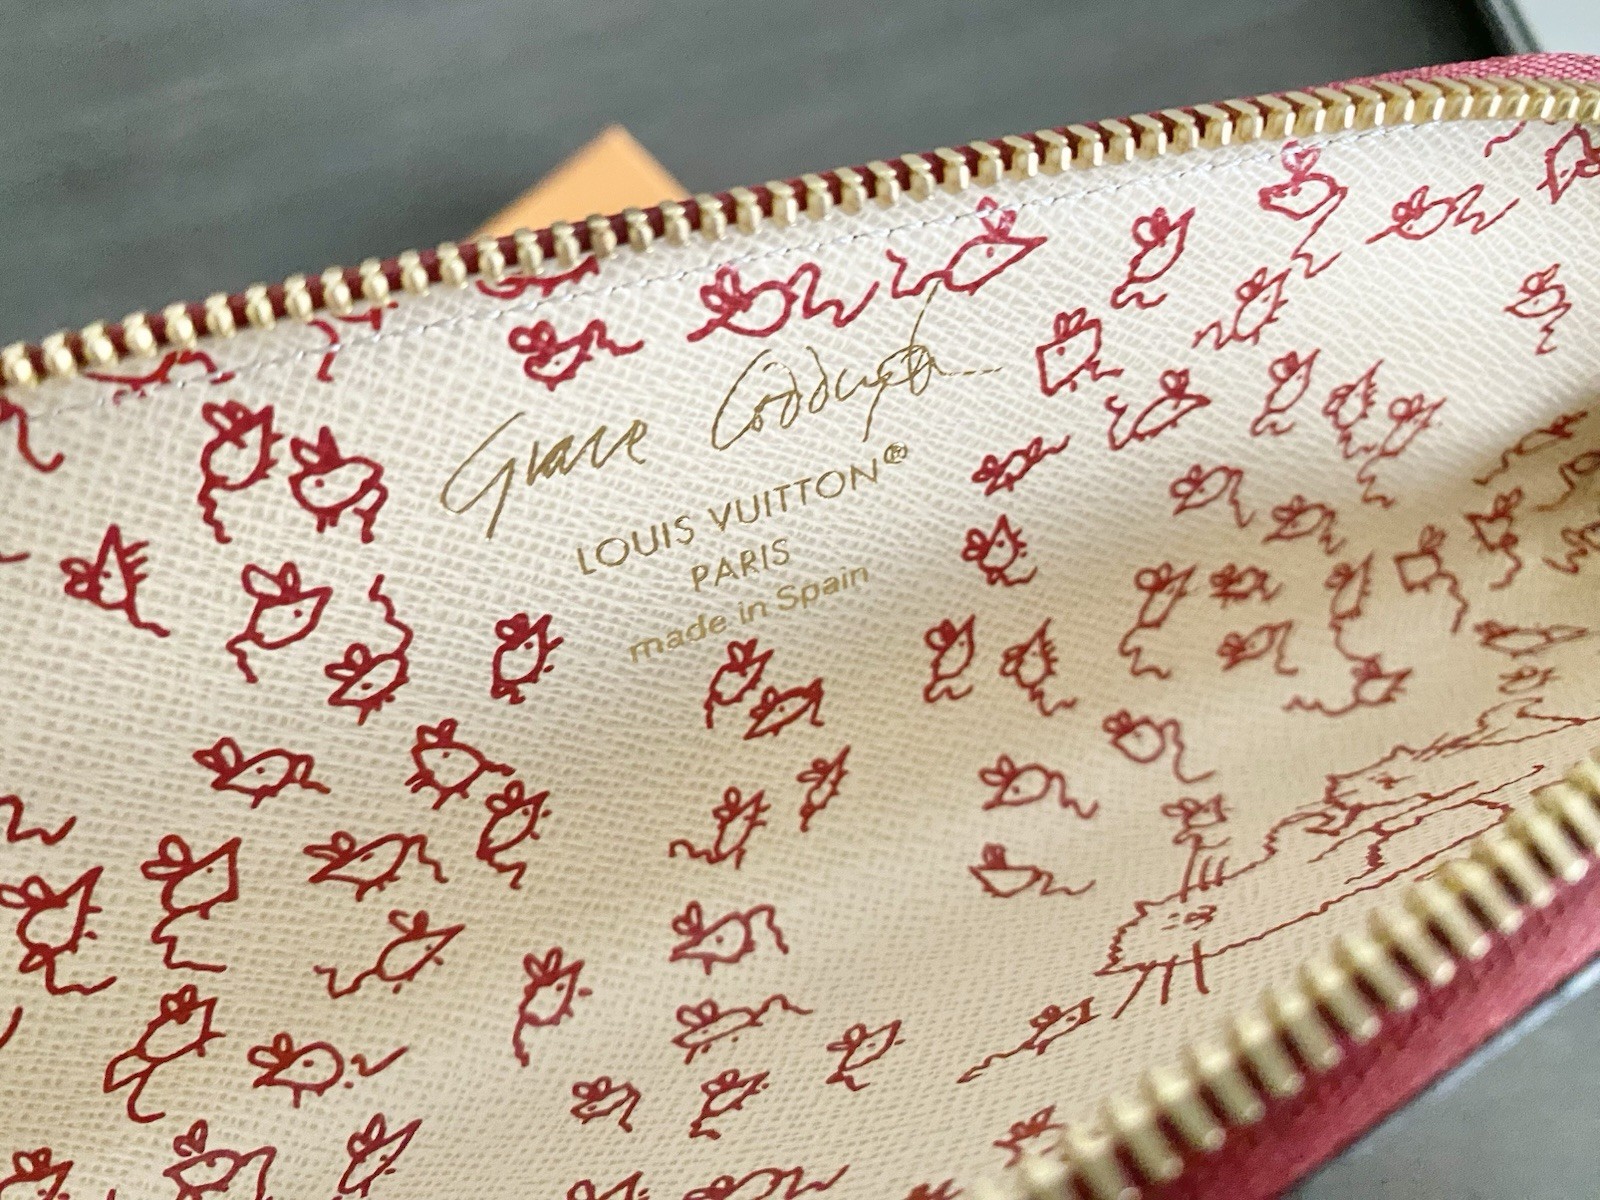 Grace Coddington
LOUIS VUITTON®
PARIS
made in Spain